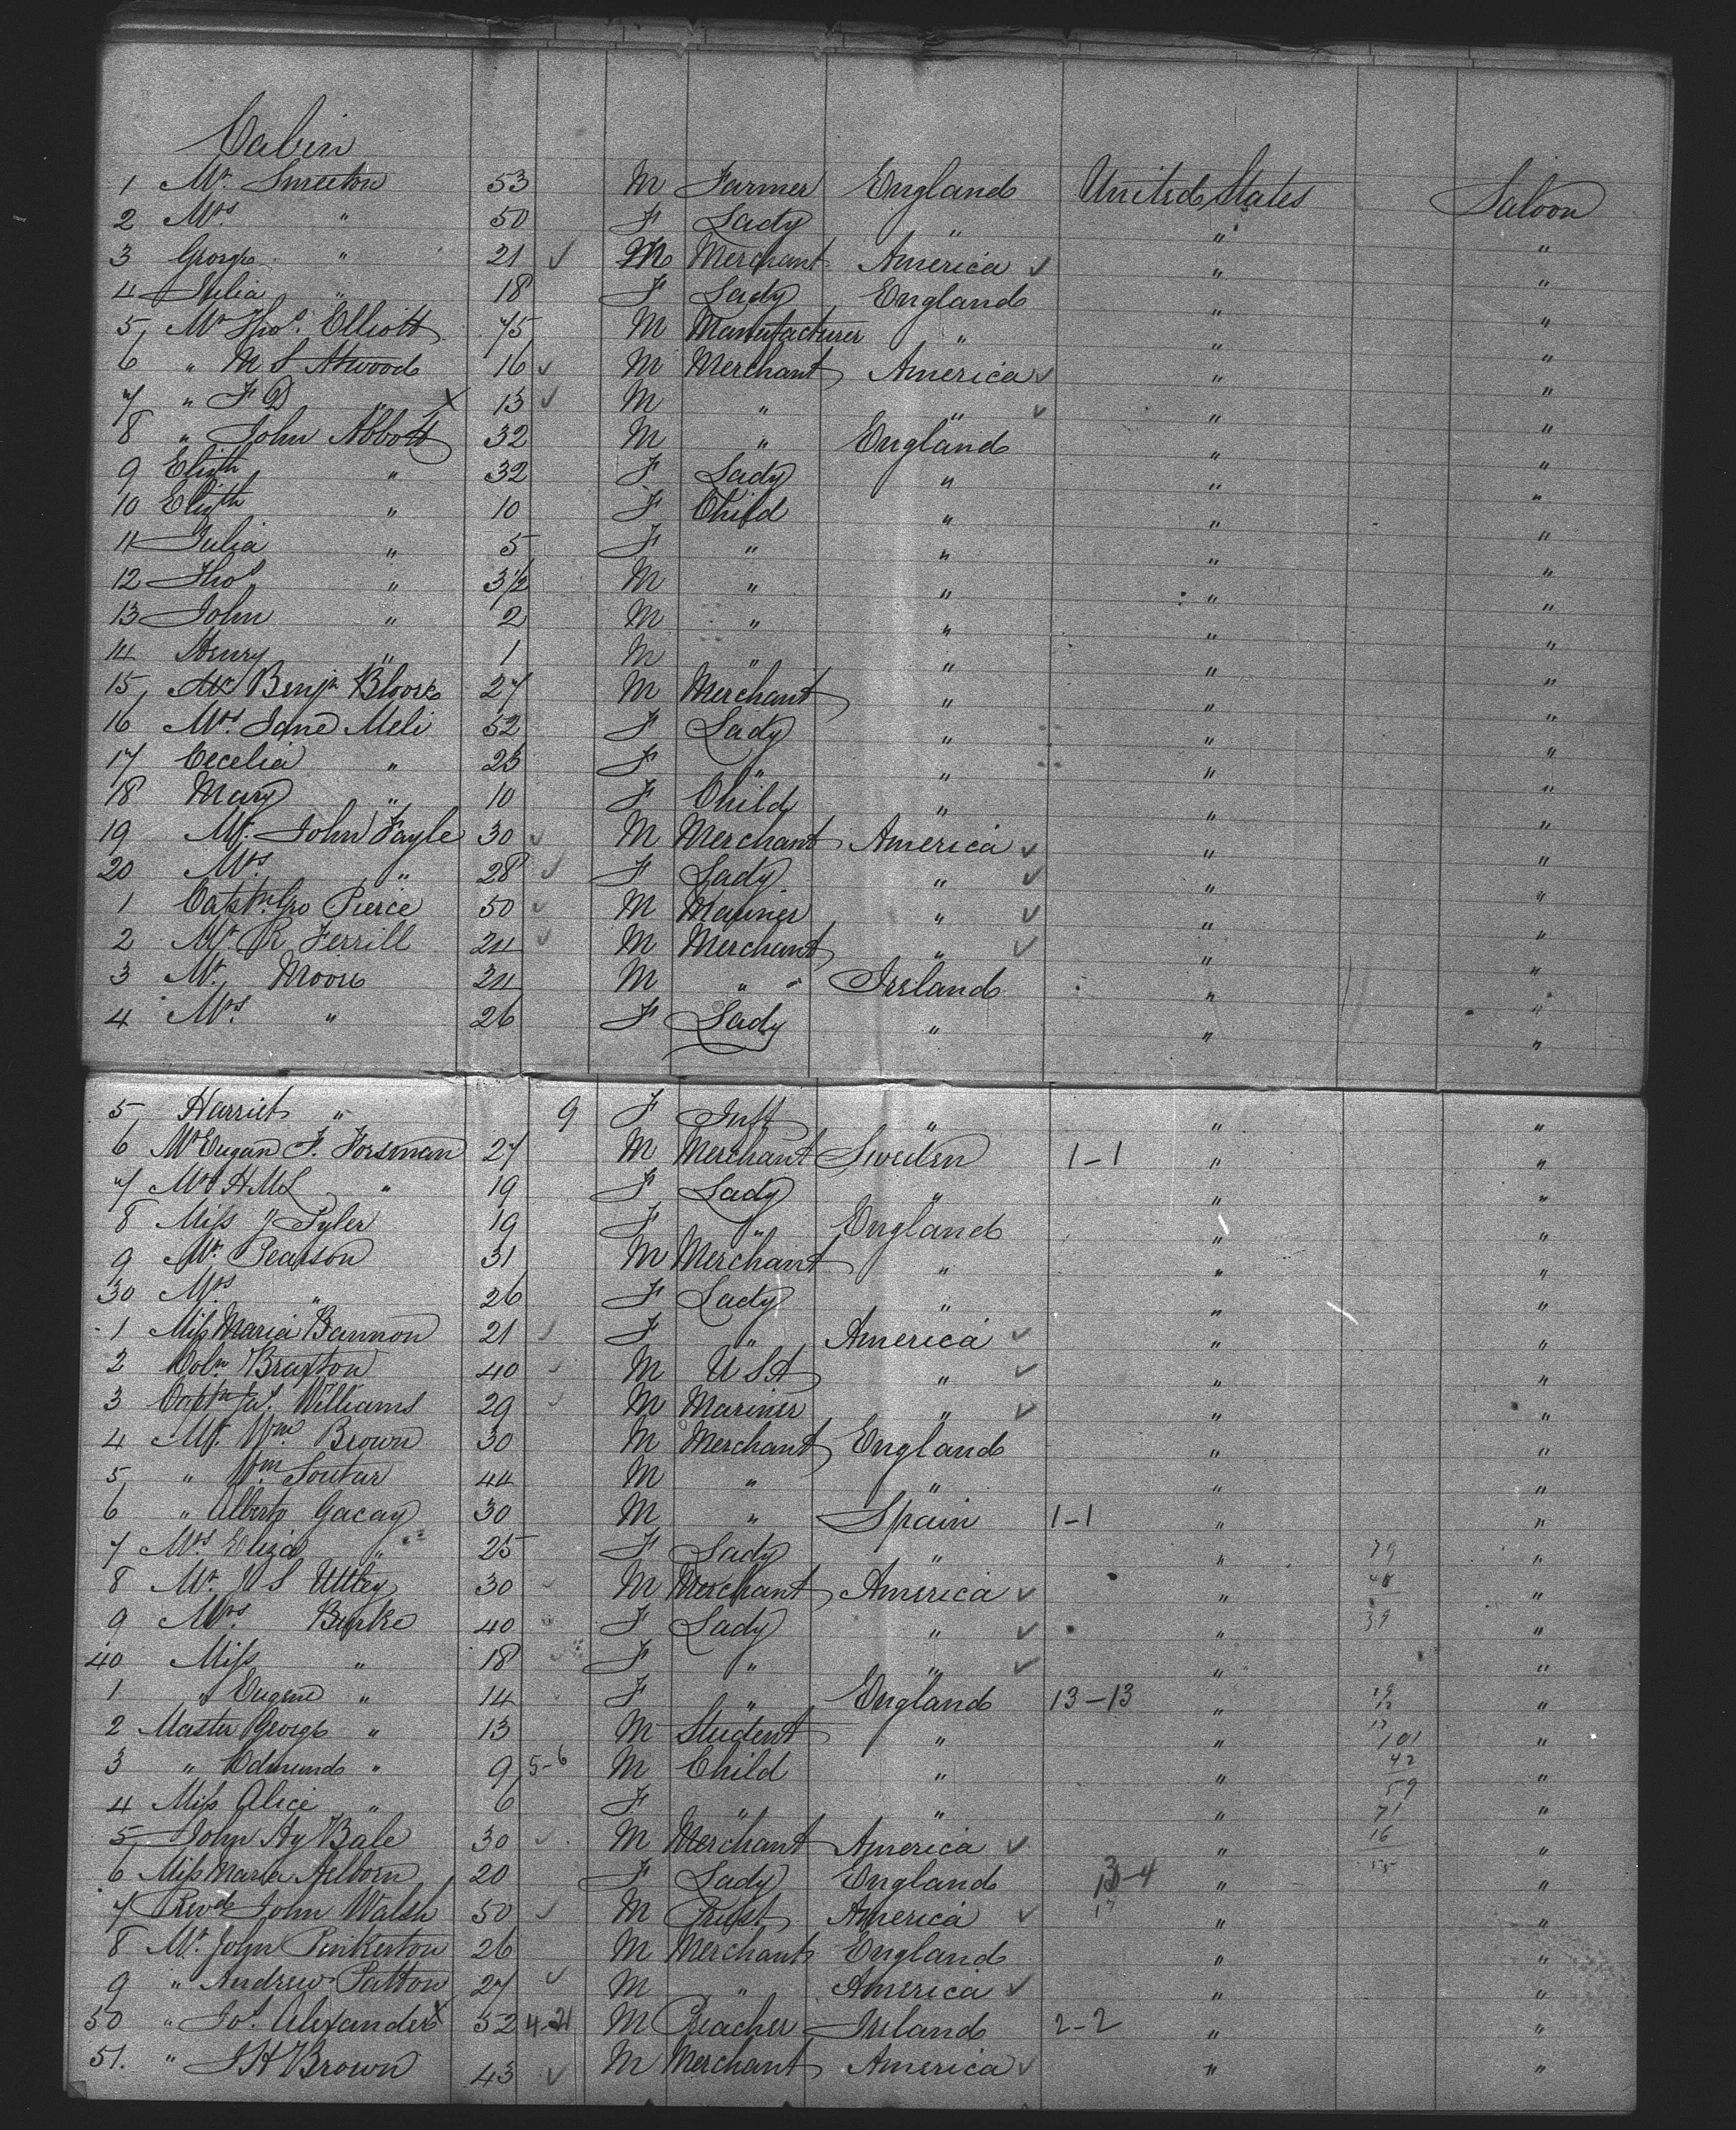 Cabin
1 Mr. Smeeton 53 M Farmer England United States Saloon
2 Mrs " 50 F Lady " " "
3 George " 21 ✓ M Merchant America ✓ " "
4 Julia " 18 F Lady England " "
5 Mr Thos. Elliott 75 M Manufacturer " " "
6 " M S Atwood 16 ✓ M Merchant America ✓ " "
7 " F D " X 13 ✓ M " " ✓ " "
8 " John Abbott 32 M " England " "
9 Elizth " 32 F Lady " " "
10 Elizth " 10 F Child " " "
11 Julia " 5 F " " " "
12 Thos " 3 1/2 M " " " "
13 John " 2 M " " " "
14 Henry " 1 M " " " "
15 Mr Benjn 27 M Merchant " " "
16 Mrs. Jane Meli 52 F Lady " " "
17 Cecelia " 23 F " " " "
18 Mary " 10 F Child " " "
19 Mr. John Fayle 30 ✓ M Merchant America ✓ " "
20 Mrs " 28 ✓ F Lady " ✓ " "
1 Captn. Geo Pierce 50 ✓ M Mariner " ✓ " "
2 Mr. R Ferrill 24 ✓ M Merchant " ✓ " "
3 Mr. Moore 34 M " Ireland " "
4 Mrs. " 26 F Lady " " "
5 Harriet " 9 F Inft " " "
6 Mr Eugan F. Forsman 27 M Merchant Sweden 1-1 " "
7 Mrs H M L " 19 F Lady " " "
8 Miss " Tyler 19 F " England " "
9 Mr. Pearson 31 M Merchant " " "
30 Mrs " 26 F Lady " " "
1 Miss Maria Bannon 21 ✓ F " America ✓ " "
2 Coln. Braxton 40 ✓ M U S A " ✓ " "
3 Captn Jas. Williams 29 ✓ M Mariner " ✓ " "
4 Mr. Wm. Brown 30 M Merchant England " "
5 " Wm. Soutar 44 M " " " "
6 " Alberto Gacay 30 M " Spain 1-1 " "
7 Mrs Eliza " 25 F Lady " " "
8 Mr. U S Utley 30 ✓ M Merchant America ✓ " "
9 Mrs Burke 40 F Lady " ✓ " "
40 Miss " 18 ✓ F " " ✓ " "
1 " Eugene " 14 F " England 13-13 " "
2 Master George " 13 M Student " " 101 "
3 " Edmund " 9 5-6 M Child " " 42 "
4 Miss Alice " 6 F " " " 59 "
5 John Hy Bale 30 ✓ M Merchant America ✓ " 16 "
6 Miss Maria 20 F Lady England "  "
7 Revd John Walsh 50 ✓ M Priest America ✓ " "
8 Mr. John Pinkerton 26 M Merchant England " "
9 " Andrew Patton 27 ✓ M " America ✓ " "
50 " Jos. Alexander X 52 M Preacher Ireland 2-2 " "
51. " J H Brown 43 ✓ M Merchant America ✓ " "